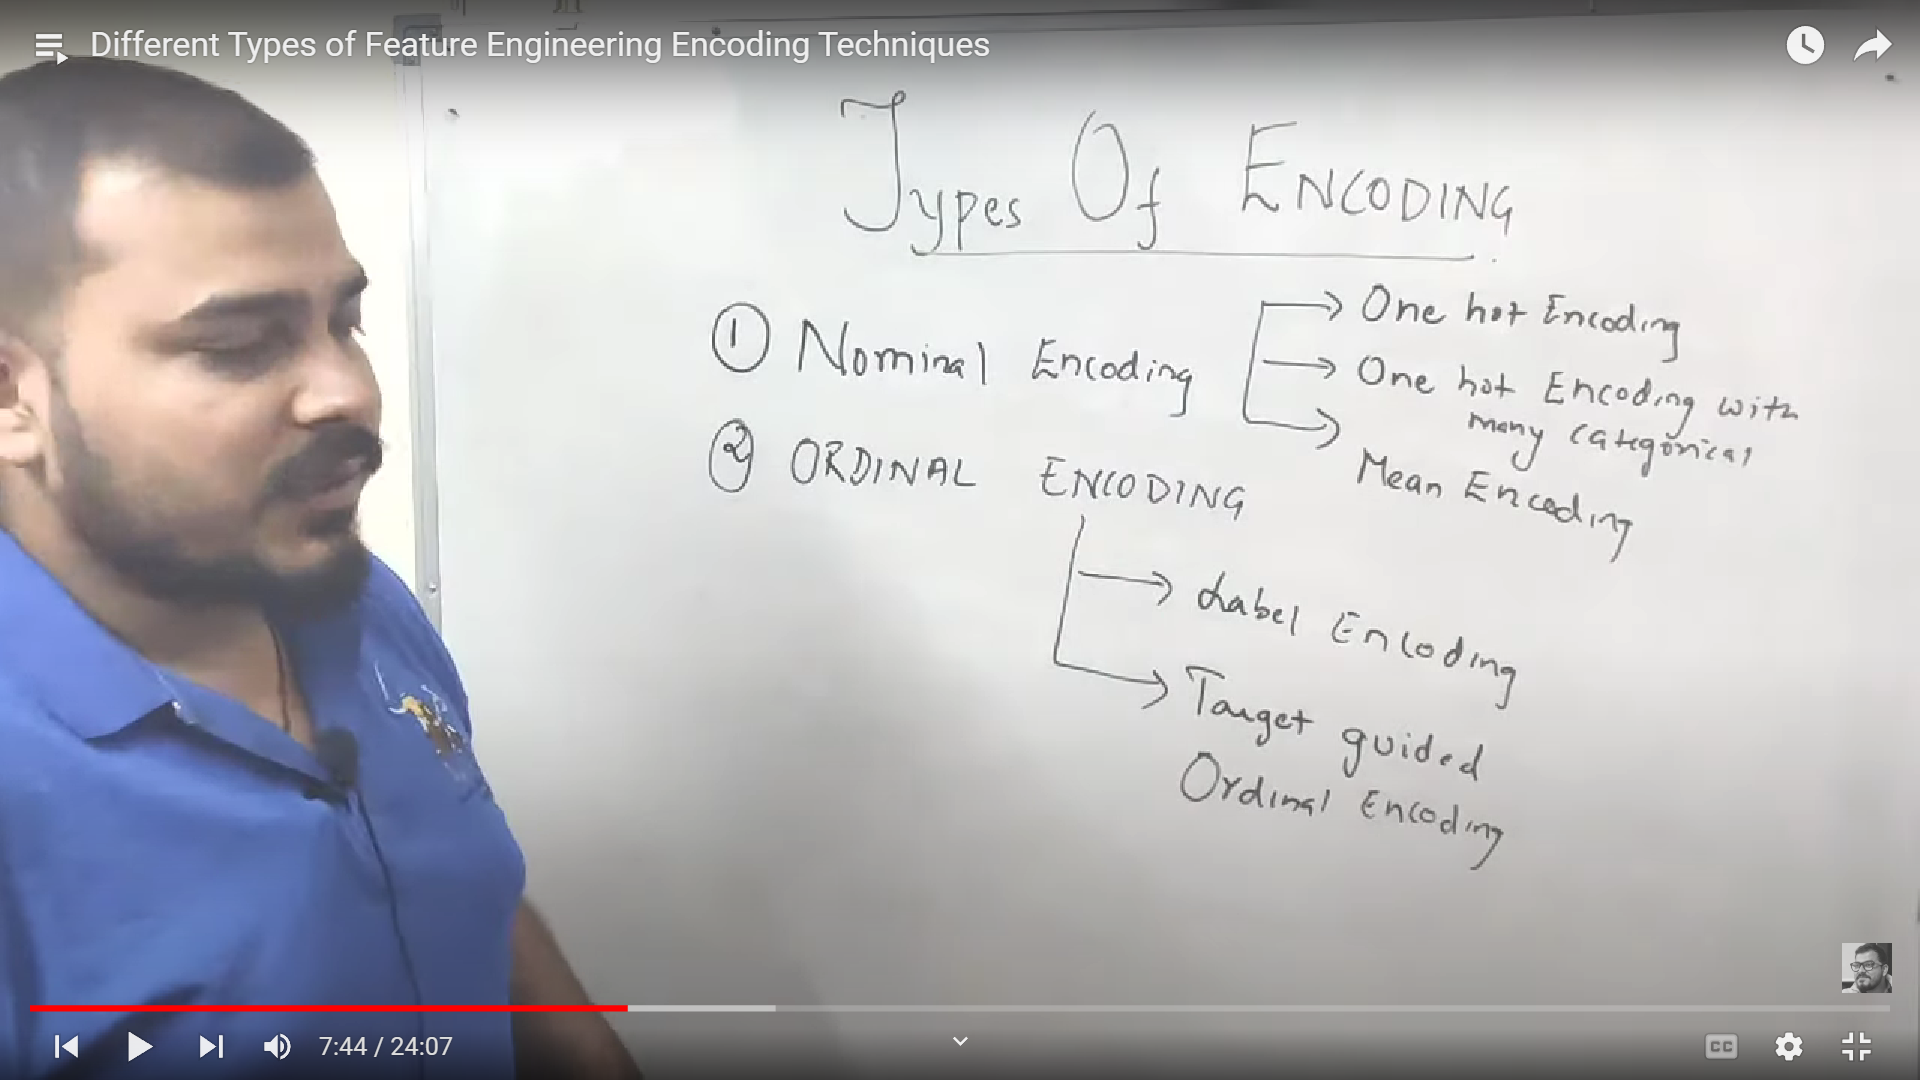 Different Types of Feature Engineering Encoding Techniques
Types Of ENCODING
① Nominal Encoding
→ One hot Encoding
→ One hot Encoding with
many categorical
→ Mean Encoding
② ORDINAL ENCODING
→ Label Encoding
→ Target guided
Ordinal Encoding
7:44 / 24:07
CC